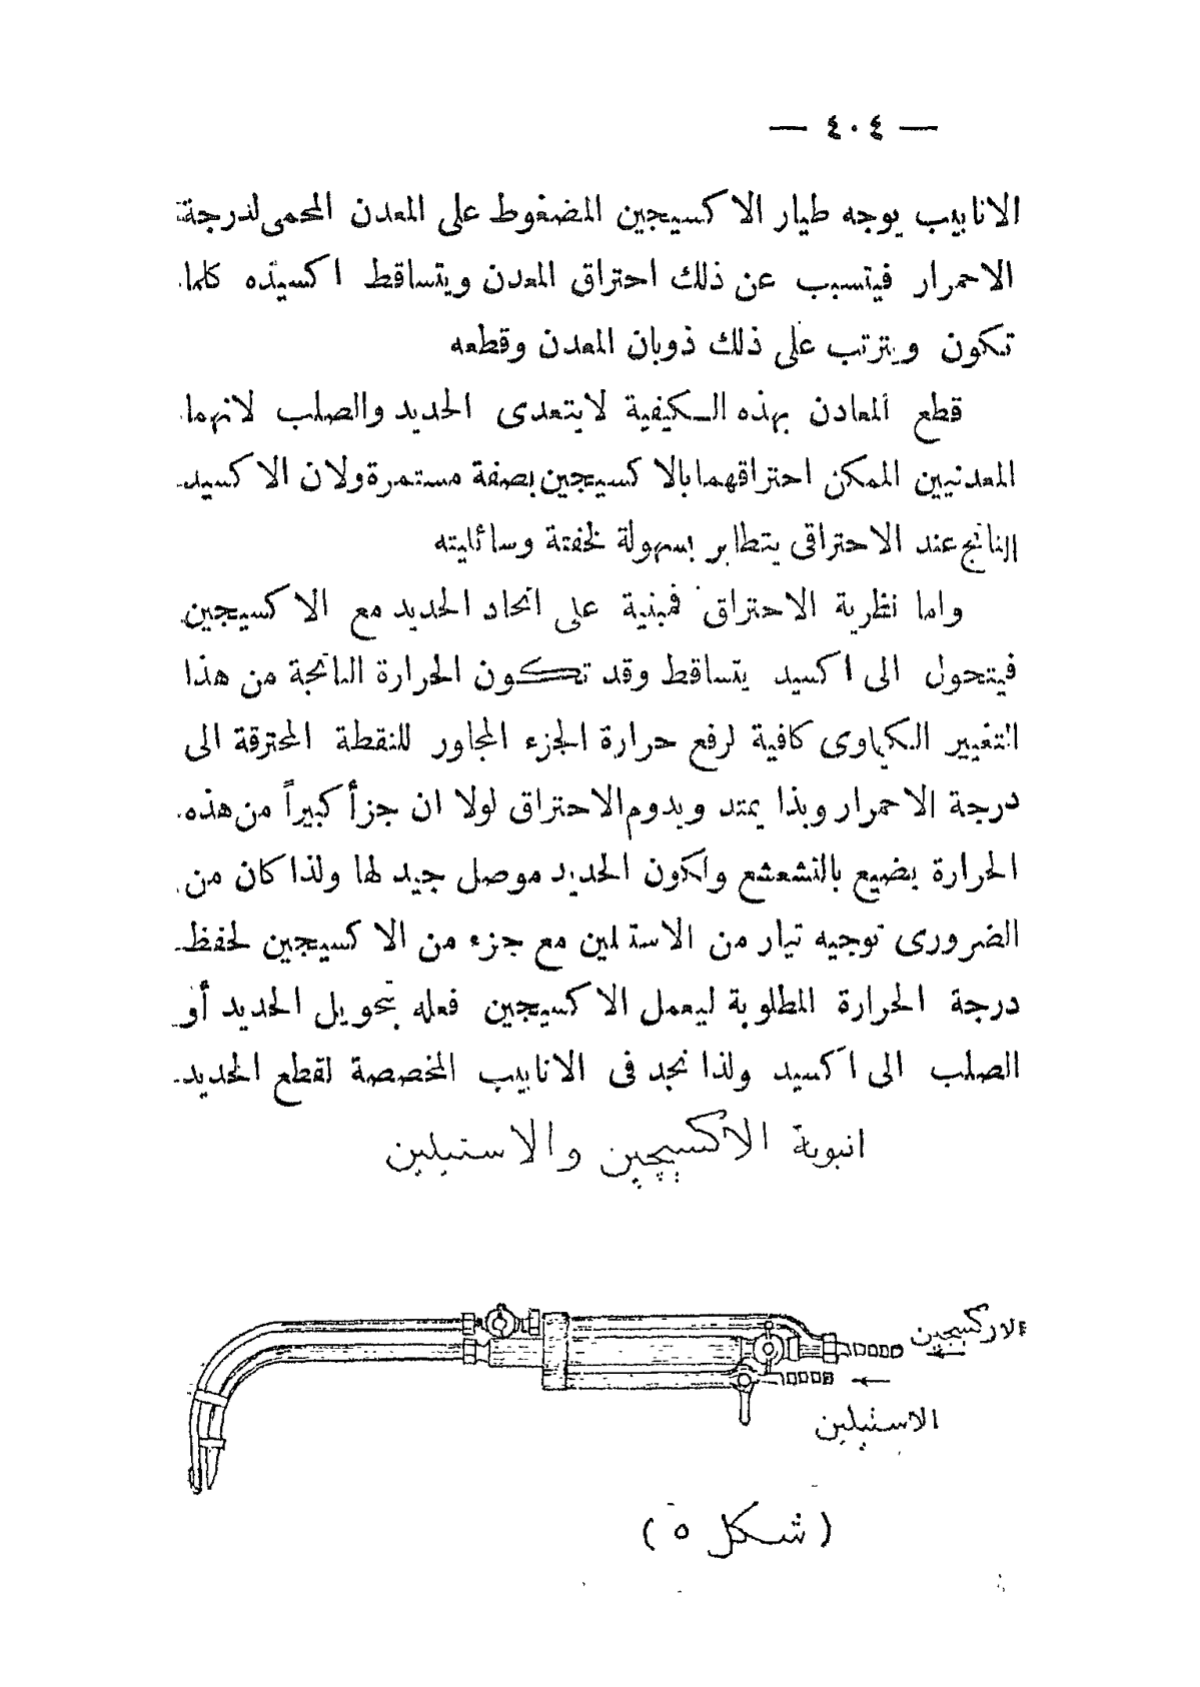 — ٤٠٤ —
الانابيب يوجه طيار الاكسيجين المضغوط على المعدن المحمى لدرجة
الاحمرار فيتسبب عن ذلك احتراق المعدن ويتساقط اكسيده كلما
تكون ويترتب على ذلك ذوبان المعدن وقطعه
قطع المعادن بهذه الكيفية لايتعدى الحديد والصلب لانهما
المعدنيين الممكن احتراقهما بالاكسيجين بصفة مستمرة ولان الاكسيد
الناتج عند الاحتراق يتطاير بسهولة لخفتة وسائليته
واما نظرية الاحتراق فمبنية على اتحاد الحديد مع الاكسيجين
فيتحول الى اكسيد يتساقط وقد تكون الحرارة الناتجة من هذا
التغيير الكيماوى كافية لرفع حرارة الجزء المجاور للنقطة المحترقة الى
درجة الاحمرار وبذا يمتد ويدوم الاحتراق لولا ان جزأ كبيراً من هذه
الحرارة يضيع بالتشعشع ولكون الحديد موصل جيد لها ولذا كان من
الضرورى توجيه تيار من الاستلين مع جزء من الاكسيجين لحفظ
درجة الحرارة المطلوبة ليعمل الاكسيجين فعله بتحويل الحديد أو
الصلب الى اكسيد ولذا نجد فى الانابيب المخصصة لقطع الحديد
انبوبة الاكسيجين والاستيلين
الاركسيجين
الاستيلين
(شكل ٥)